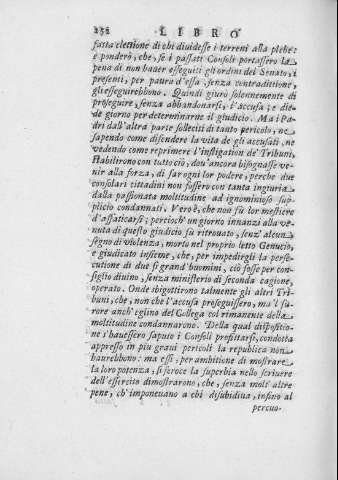 232 LIBRO
fatta elettione di chi diuidesse i terreni alla plebe:
e ponderò, che, se i passati Consoli portassero la
pena di non hauer esseguiti gli ordini del Senato, i
presenti, per paura d'essa, senza contradittione,
gli esseguirebbono. Quindi giurò solennemente di
proseguire, senza abbandonarsi, l'accusa; e die-
de giorno per determinarne il giudicio. Ma i Pa-
dri dall'altra parte solleciti di tanto pericolo, ne
sapendo come difendere la vita de gli accusati, ne
vedendo come reprimere l'instigation de' Tribuni,
stabilirono con tutto ciò, dou' ancora bisognasse ve-
nir alla forza, di far ogni lor podere, perche due
consolari cittadini non fossero con tanta ingiuria
dalla passionata moltitudine ad ignominioso sup-
plicio condannati. Vero è, che non fu lor mestiere
d'affaticarsi; percioch' un giorno innanzi alla ve-
nuta di questo giudicio fu ritrouato, senz' alcun
segno di violenza, morto nel proprio letto Genucio,
e giudicato insieme, che, per impedirgli la perse-
cutione di due sì grand' huomini, ciò fosse per con-
siglio diuino, senza ministerio di seconda cagione,
operato. Onde sbigottirono talmente gli altri Tri-
buni, che, non che l'accusa proseguissero, ma 'l fu-
rore anch' eglino del Collega col rimanente della
moltitudine condannarono. Della qual dispositio-
ne s'hauessero saputo i Consoli prefittarsi, condotta
appresso in più graui pericoli la republica non
haurebbono: ma essi, per ambitione di mostrare
la loro potenza, sì feroce la superbia nello scriuere
dell'essercito dimostrarono, che, senza molt' altre
pene, ch' imponeuano a chi disubidiua, infino al
percuo-